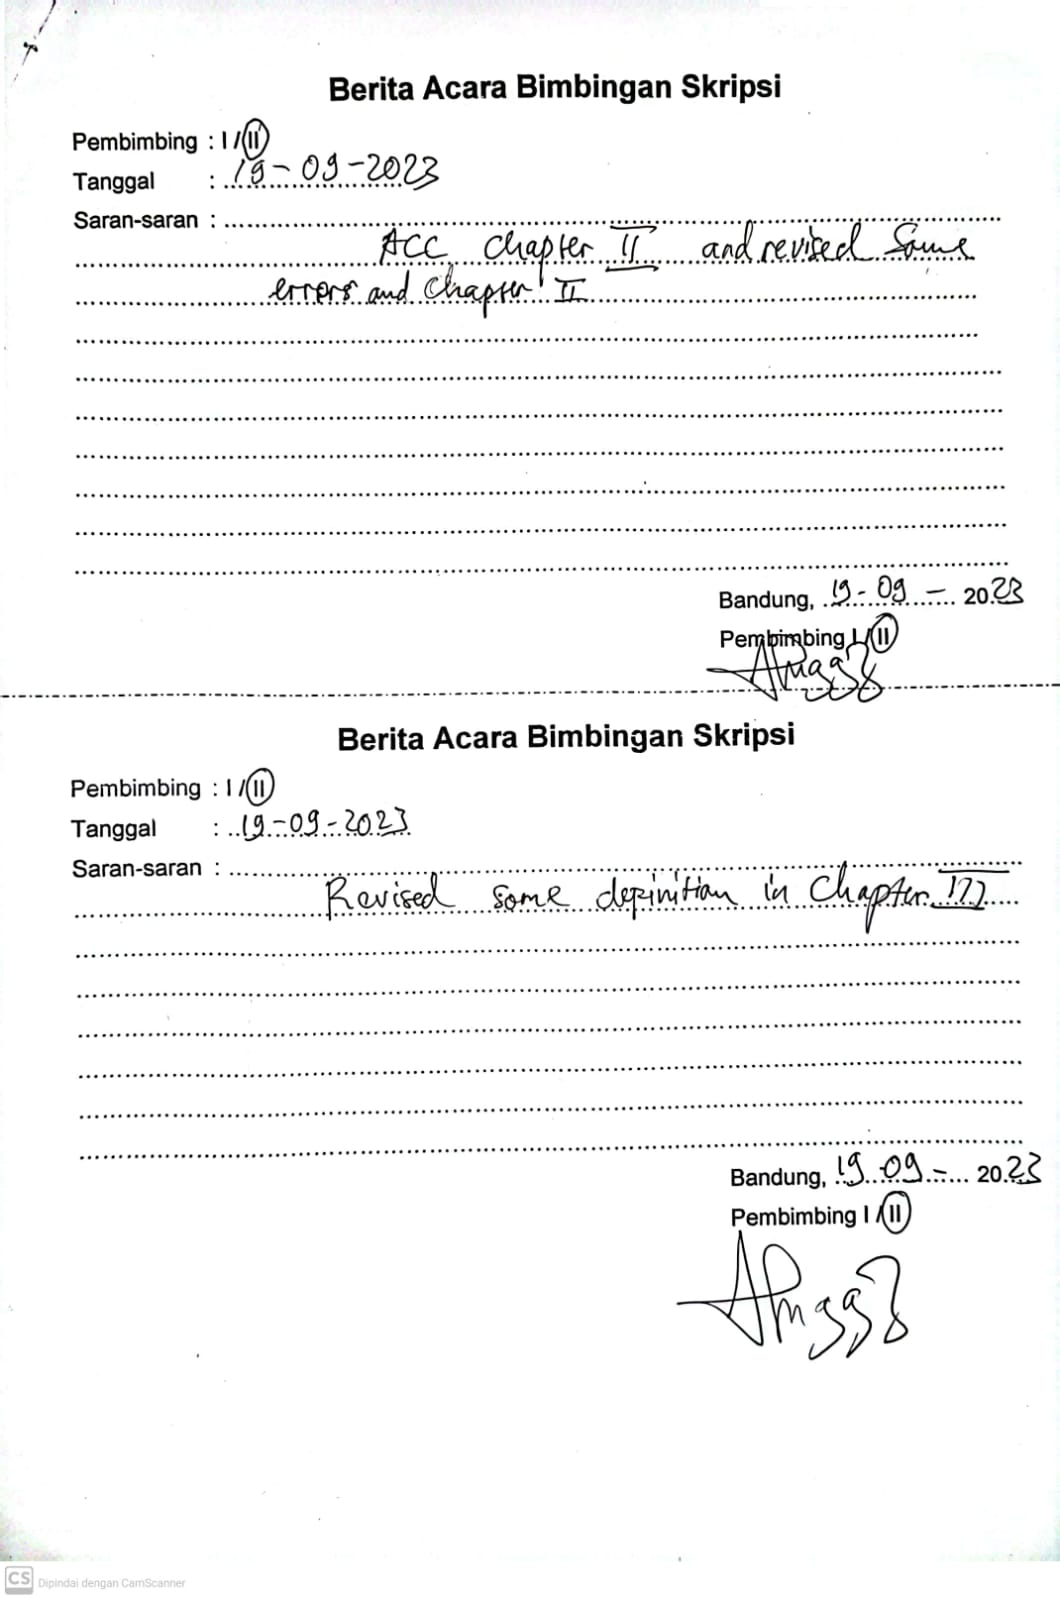 Berita Acara Bimbingan Skripsi
Pembimbing : I / II
Tanggal : 19-09-2023
Saran-saran :
ACC chapter II and revised Some
errors and Chapter II
Bandung, 19-09-2023
Pembimbing I/II
Berita Acara Bimbingan Skripsi
Pembimbing : I / II
Tanggal : 19-09-2023
Saran-saran :
Revised some definition in Chapter III
Bandung, 19 09 - 2023
Pembimbing I / II
CS Dipindai dengan CamScanner